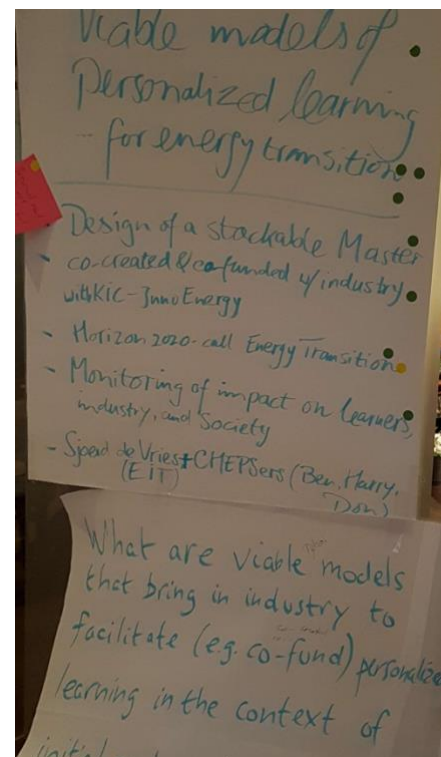 Viable models of
Personalized learning
- for energy transition
- Design of a stackable Master
- co-created & co-funded w/ industry
with KIC-InnoEnergy
- Horizon 2020-call Energy Transition
- Monitoring of impact on learners,
industry, and Society
- Sjoerd de Vries + CHEPSers (Ben, Harry,
(EIT) Don)
What are viable models
that bring in industry to
facilitate (e.g. co-fund) personalize
learning in the context of
initial